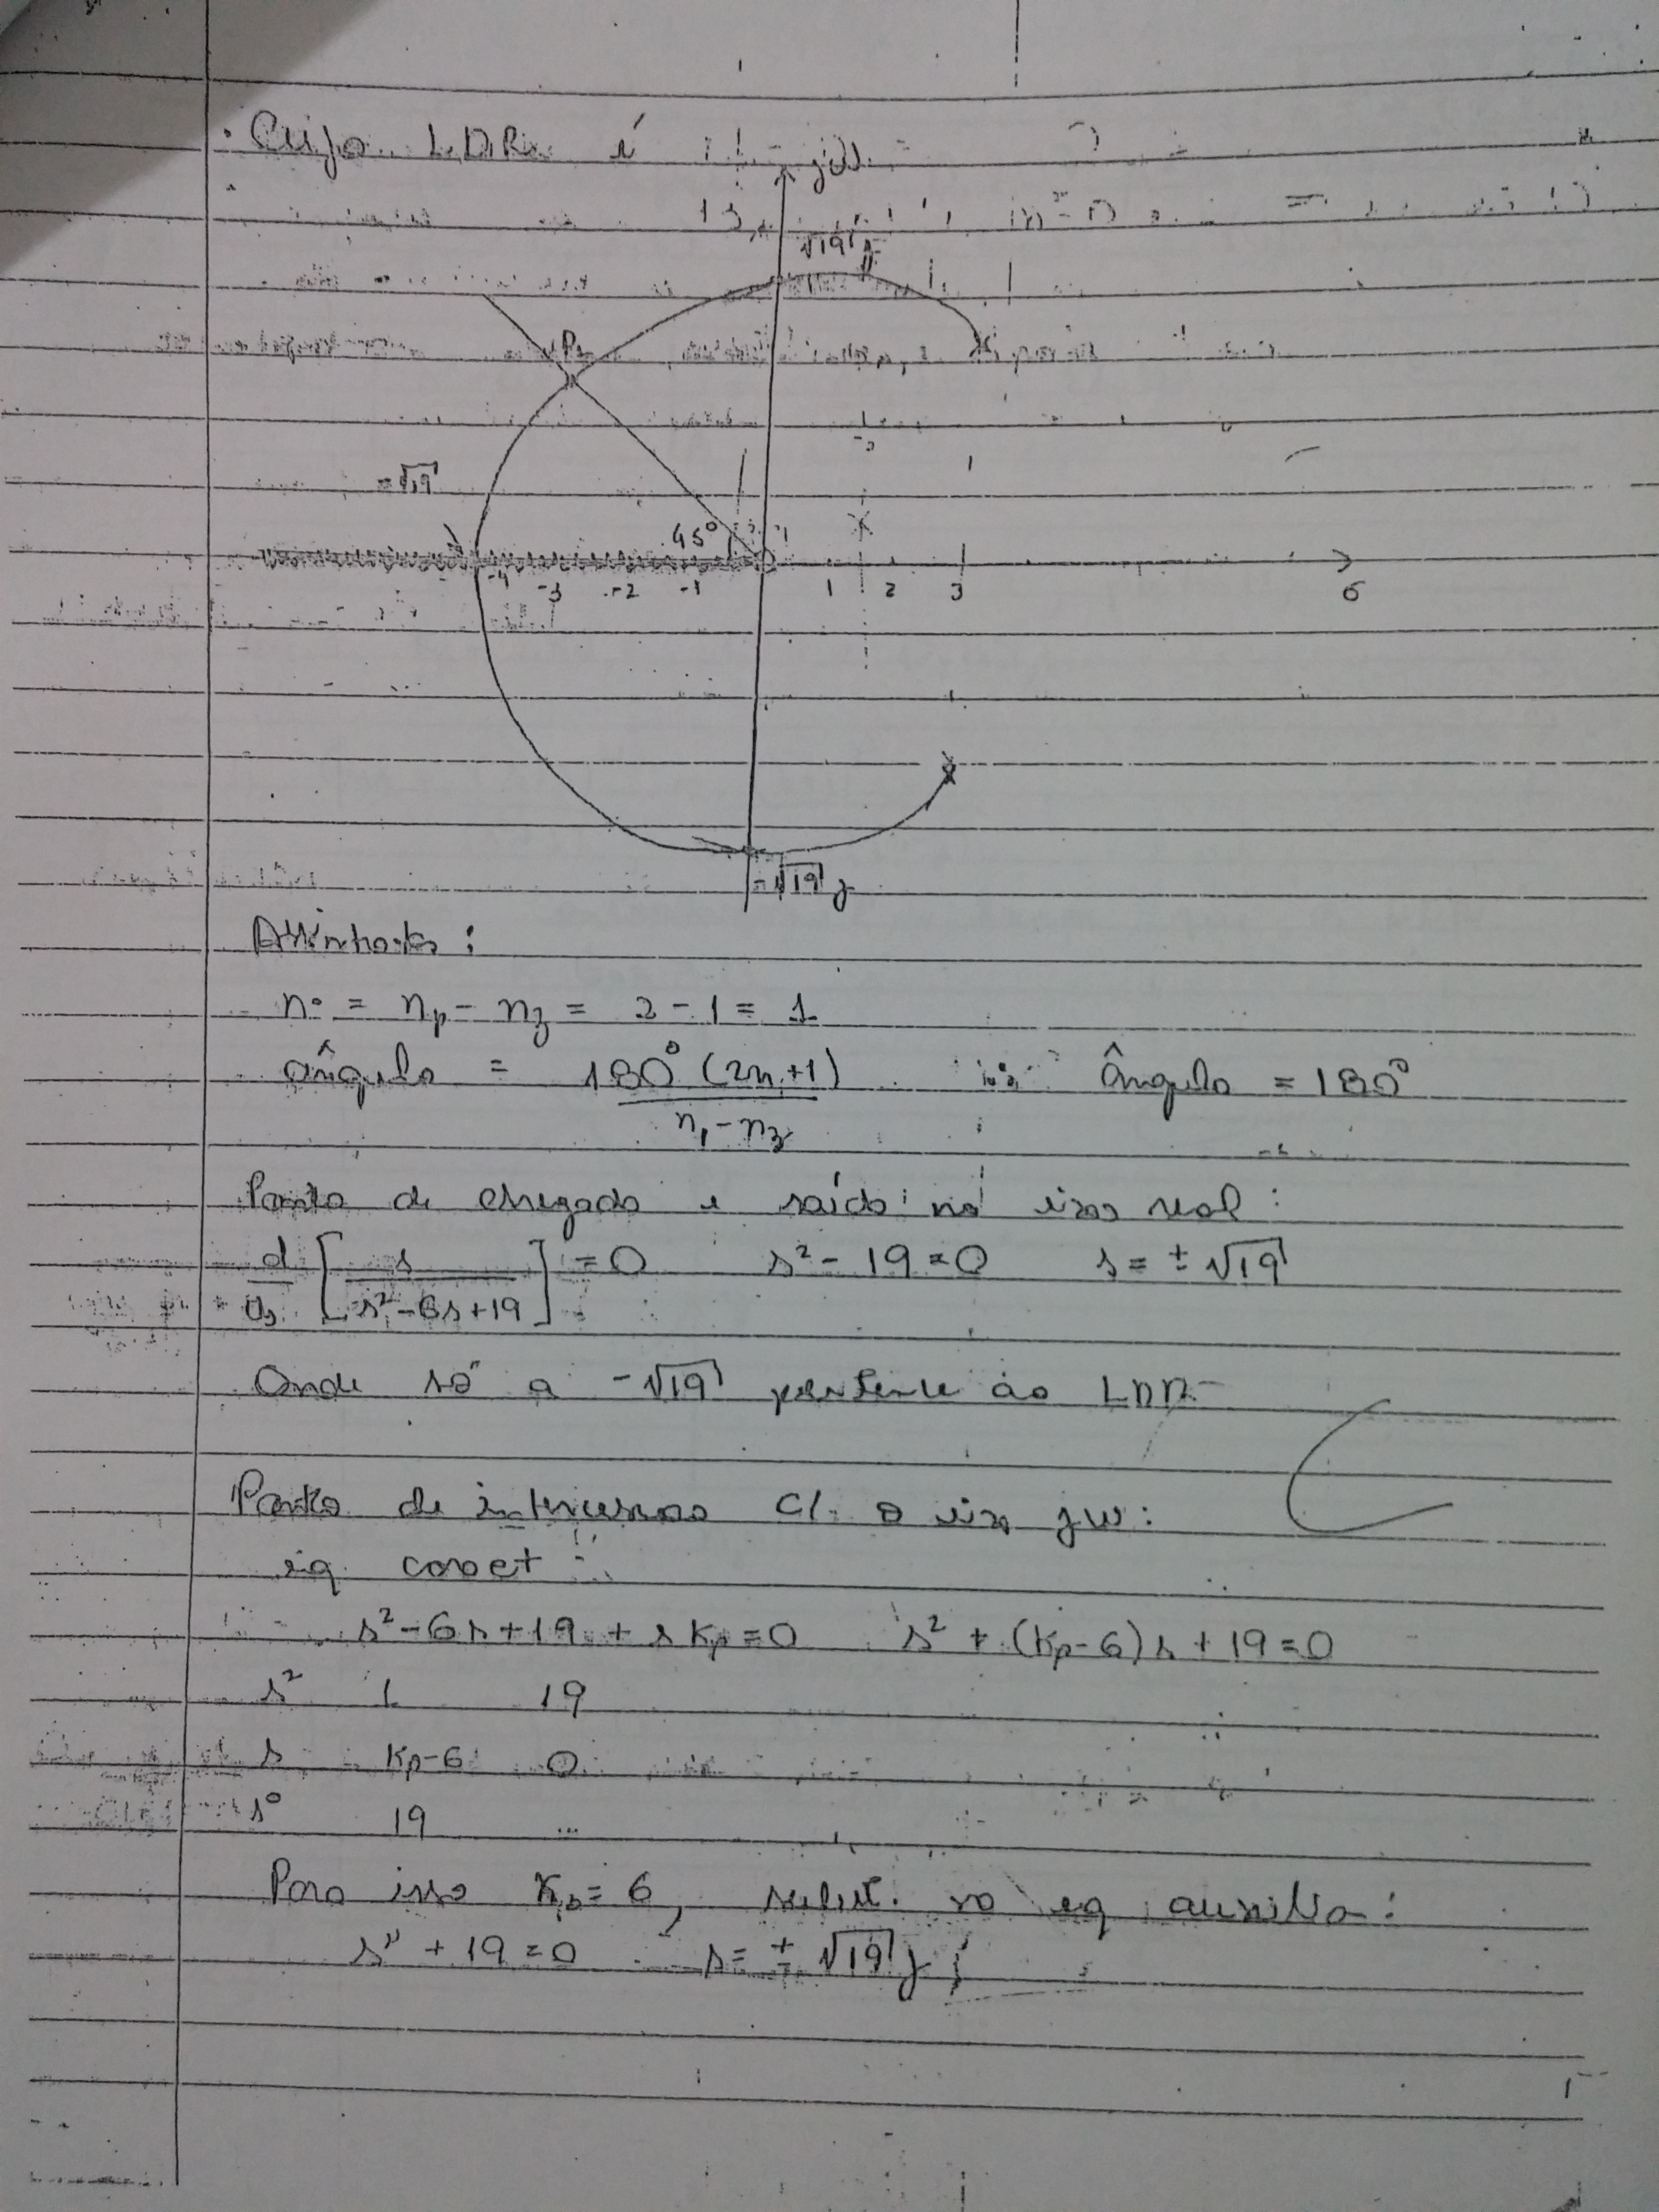 · Cujo L.D.R. é
jω
√19 j
P1
= √19
45°
-4 -3 -2 -1 1 2 3 6
-√19 j
Assíntota:
nº = np - nz = 2 - 1 = 1
ângulo = 180° (2n+1) / np - nz ângulo = 180°
Ponto de chegada e saída no eixo real:
d/ds [s / s² - 6s + 19] = 0 s² - 19 = 0 s = ± √19
Onde só a -√19 pertence ao LDR
Ponto de intersecao c/ o eixo jw:
eq. caract:
s² - 6s + 19 + s Kp = 0 s² + (Kp - 6)s + 19 = 0
s² 1 19
s Kp-6 0
s⁰ 19 ...
Para isso Kp = 6, subst. na eq auxilia:
s² + 19 = 0 s = ± √19 j